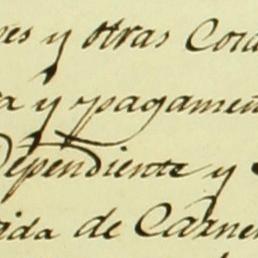 es y otras Cord
a y pagamen
Dependiente y
ida de Carne